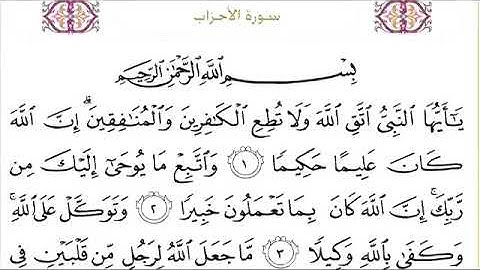 سورة الأحزاب
بِسْمِ اللَّهِ الرَّحْمَٰنِ الرَّحِيمِ
يَـٰٓأَيُّهَا النَّبِيُّ اتَّقِ اللَّهَ وَلَا تُطِعِ الْكَـٰفِرِينَ وَالْمُنَـٰفِقِينَ ۗ إِنَّ اللَّهَ
كَانَ عَلِيمًا حَكِيمًا ١ وَاتَّبِعْ مَا يُوحَىٰٓ إِلَيْكَ مِن
رَّبِّكَ ۚ إِنَّ اللَّهَ كَانَ بِمَا تَعْمَلُونَ خَبِيرًا ٢ وَتَوَكَّلْ عَلَى اللَّهِ ۚ
وَكَفَىٰ بِاللَّهِ وَكِيلًا ٣ مَّا جَعَلَ اللَّهُ لِرَجُلٍ مِّن قَلْبَيْنِ فِي